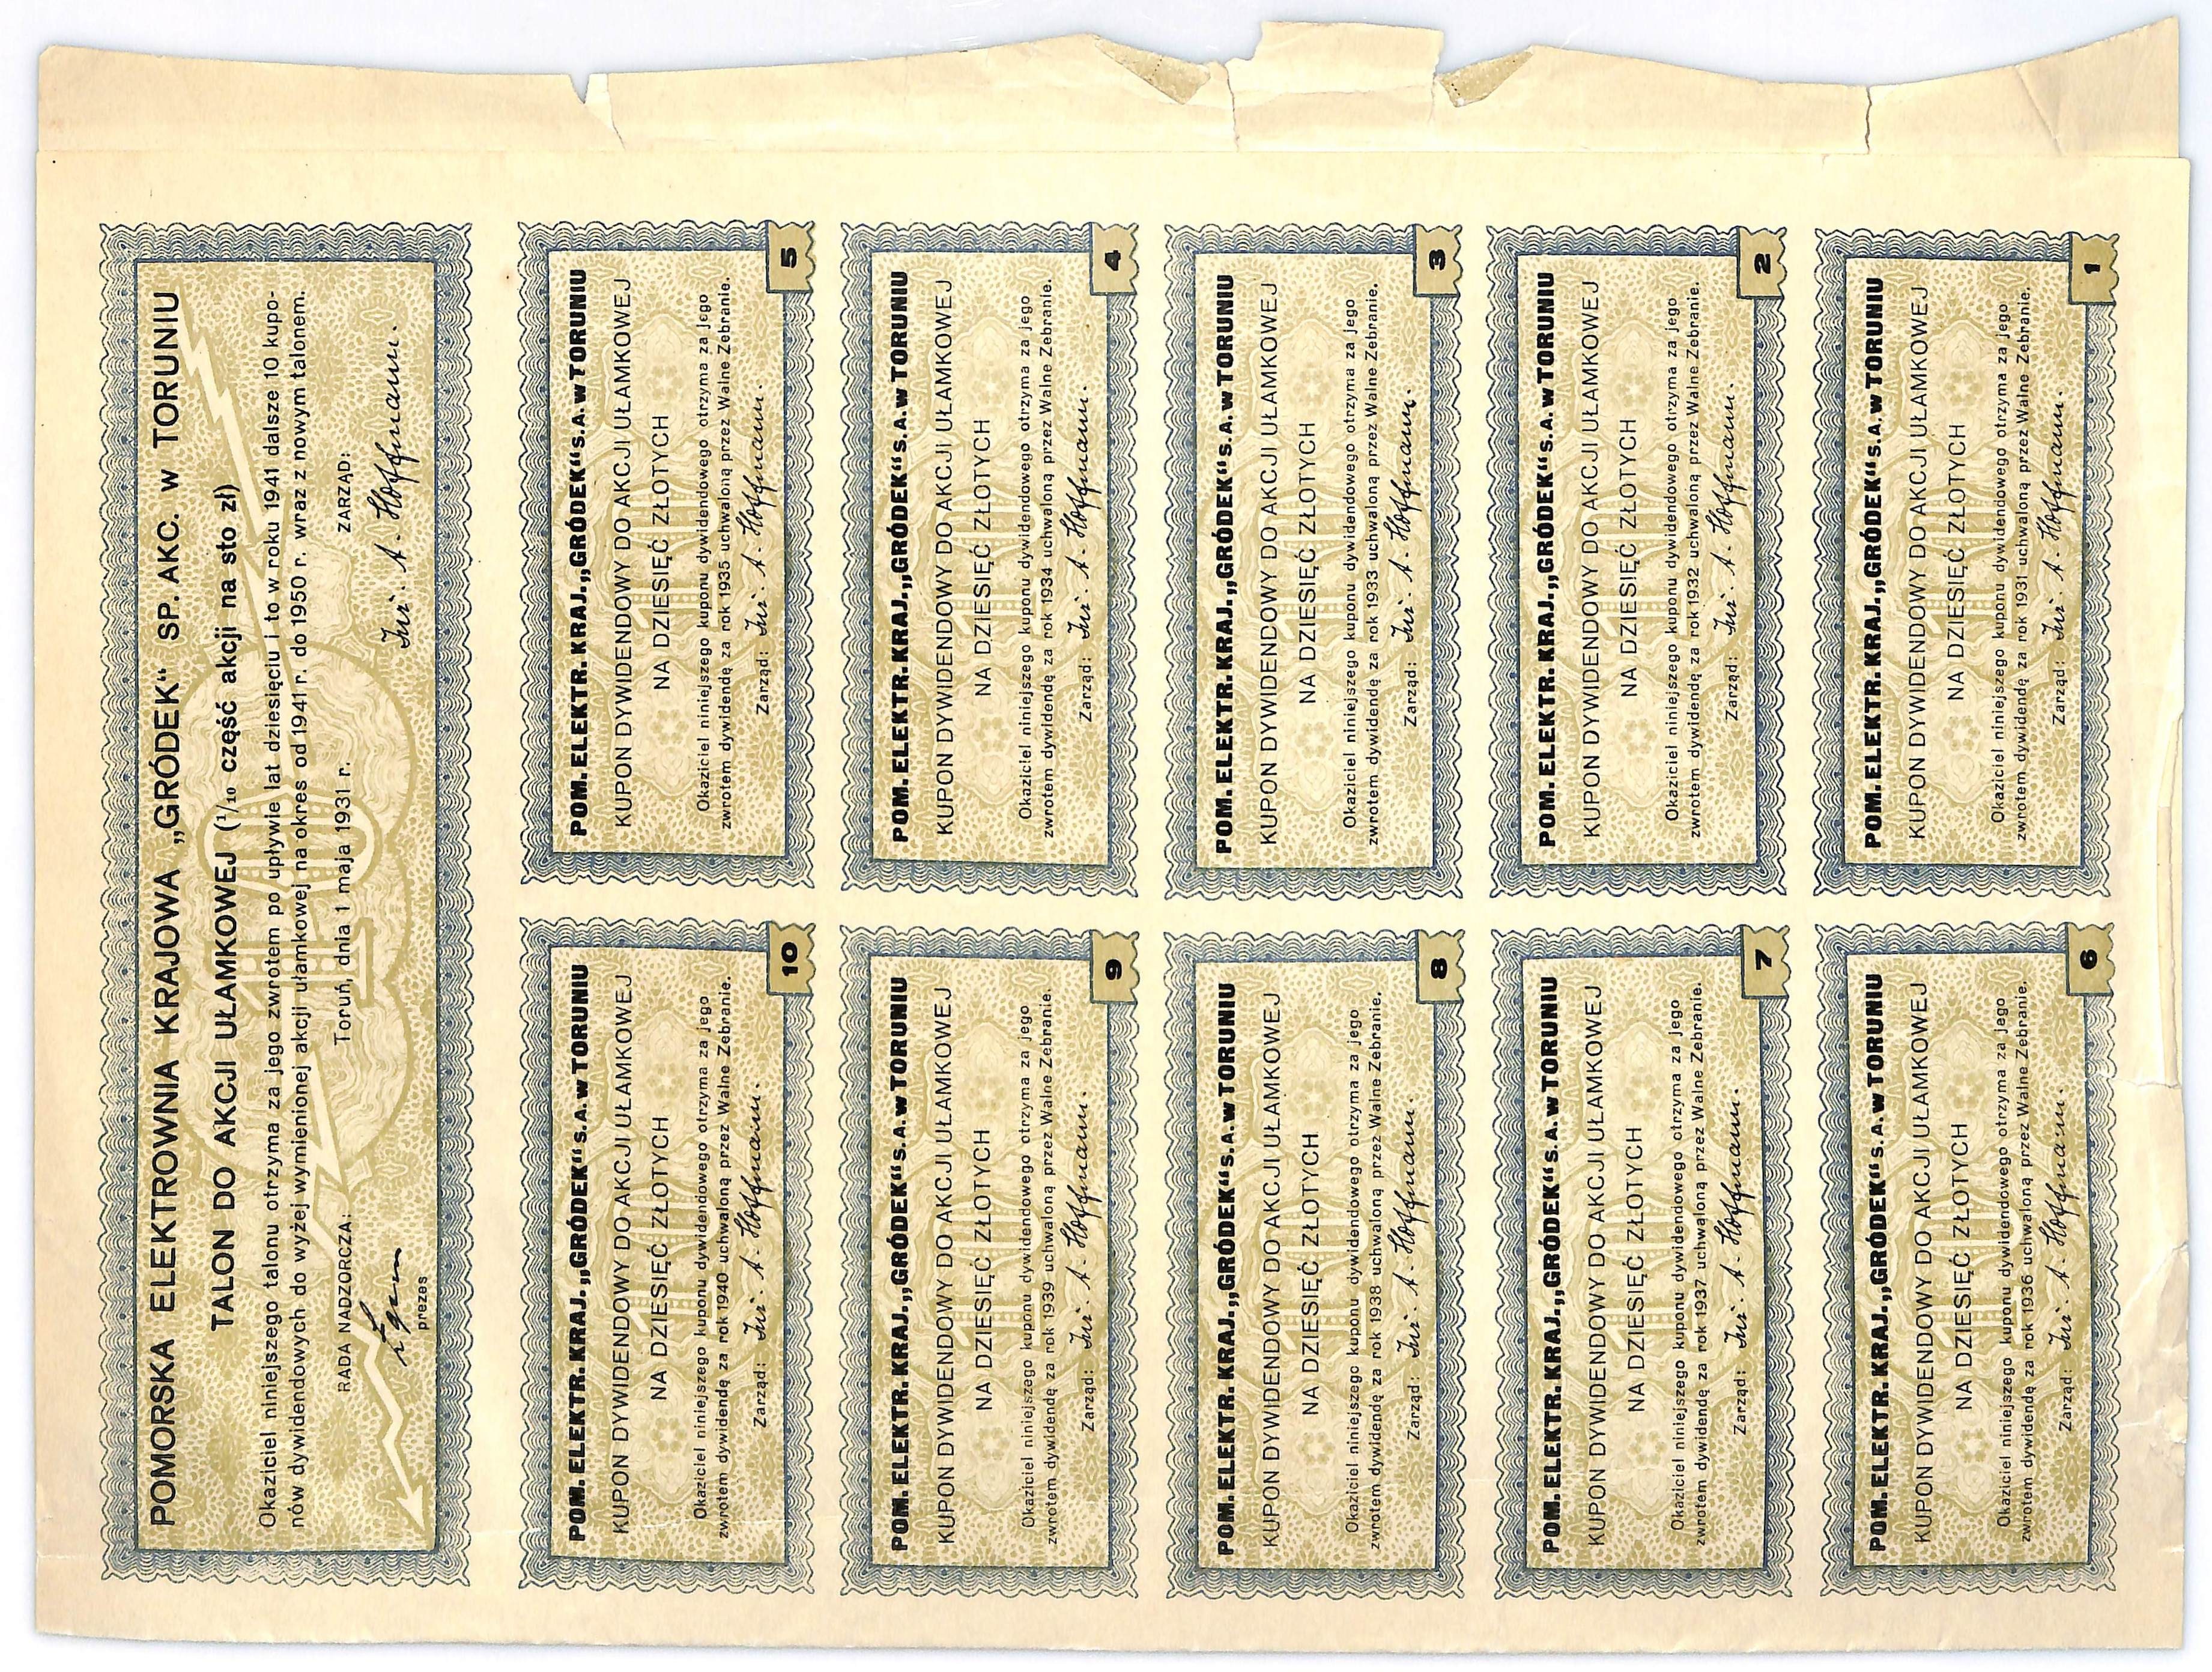 POMORSKA ELEKTROWNIA KRAJOWA „GRÓDEK“ SP. AKC. w TORUNIU
TALON DO AKCJI UŁAMKOWEJ (1/10 część akcji na sto zł)
Okaziciel niniejszego talonu otrzyma za jego zwrotem po upływie lat dziesięciu i to w roku 1941 dalsze 10 kupo-
nów dywidendowych do wyżej wymienionej akcji ułamkowej na okres od 1941 r. do 1950 r. wraz z nowym talonem.
Toruń, dnia 1 maja 1931 r.
RADA NADZORCZA:
prezes
ZARZĄD:
Inż. A. Hoffmann.
POM. ELEKTR. KRAJ. „GRÓDEK“ S.A. w TORUNIU
KUPON DYWIDENDOWY DO AKCJI UŁAMKOWEJ
NA DZIESIĘĆ ZŁOTYCH
Okaziciel niniejszego kuponu dywidendowego otrzyma za jego
zwrotem dywidendę za rok 1940 uchwaloną przez Walne Zebranie.
Zarząd: Inż. A. Hoffmann.
10
POM. ELEKTR. KRAJ. „GRÓDEK“ S.A. w TORUNIU
KUPON DYWIDENDOWY DO AKCJI UŁAMKOWEJ
NA DZIESIĘĆ ZŁOTYCH
Okaziciel niniejszego kuponu dywidendowego otrzyma za jego
zwrotem dywidendę za rok 1935 uchwaloną przez Walne Zebranie.
Zarząd: Inż. A. Hoffmann.
5
POM. ELEKTR. KRAJ. „GRÓDEK“ S.A. w TORUNIU
KUPON DYWIDENDOWY DO AKCJI UŁAMKOWEJ
NA DZIESIĘĆ ZŁOTYCH
Okaziciel niniejszego kuponu dywidendowego otrzyma za jego
zwrotem dywidendę za rok 1939 uchwaloną przez Walne Zebranie.
Zarząd: Inż. A. Hoffmann.
9
POM. ELEKTR. KRAJ. „GRÓDEK“ S.A. w TORUNIU
KUPON DYWIDENDOWY DO AKCJI UŁAMKOWEJ
NA DZIESIĘĆ ZŁOTYCH
Okaziciel niniejszego kuponu dywidendowego otrzyma za jego
zwrotem dywidendę za rok 1934 uchwaloną przez Walne Zebranie.
Zarząd: Inż. A. Hoffmann.
4
POM. ELEKTR. KRAJ. „GRÓDEK“ S.A. w TORUNIU
KUPON DYWIDENDOWY DO AKCJI UŁAMKOWEJ
NA DZIESIĘĆ ZŁOTYCH
Okaziciel niniejszego kuponu dywidendowego otrzyma za jego
zwrotem dywidendę za rok 1938 uchwaloną przez Walne Zebranie.
Zarząd: Inż. A. Hoffmann.
8
POM. ELEKTR. KRAJ. „GRÓDEK“ S.A. w TORUNIU
KUPON DYWIDENDOWY DO AKCJI UŁAMKOWEJ
NA DZIESIĘĆ ZŁOTYCH
Okaziciel niniejszego kuponu dywidendowego otrzyma za jego
zwrotem dywidendę za rok 1933 uchwaloną przez Walne Zebranie.
Zarząd: Inż. A. Hoffmann.
3
POM. ELEKTR. KRAJ. „GRÓDEK“ S.A. w TORUNIU
KUPON DYWIDENDOWY DO AKCJI UŁAMKOWEJ
NA DZIESIĘĆ ZŁOTYCH
Okaziciel niniejszego kuponu dywidendowego otrzyma za jego
zwrotem dywidendę za rok 1937 uchwaloną przez Walne Zebranie.
Zarząd: Inż. A. Hoffmann.
7
POM. ELEKTR. KRAJ. „GRÓDEK“ S.A. w TORUNIU
KUPON DYWIDENDOWY DO AKCJI UŁAMKOWEJ
NA DZIESIĘĆ ZŁOTYCH
Okaziciel niniejszego kuponu dywidendowego otrzyma za jego
zwrotem dywidendę za rok 1932 uchwaloną przez Walne Zebranie.
Zarząd: Inż. A. Hoffmann.
2
POM. ELEKTR. KRAJ. „GRÓDEK“ S.A. w TORUNIU
KUPON DYWIDENDOWY DO AKCJI UŁAMKOWEJ
NA DZIESIĘĆ ZŁOTYCH
Okaziciel niniejszego kuponu dywidendowego otrzyma za jego
zwrotem dywidendę za rok 1936 uchwaloną przez Walne Zebranie.
Zarząd: Inż. A. Hoffmann.
6
POM. ELEKTR. KRAJ. „GRÓDEK“ S.A. w TORUNIU
KUPON DYWIDENDOWY DO AKCJI UŁAMKOWEJ
NA DZIESIĘĆ ZŁOTYCH
Okaziciel niniejszego kuponu dywidendowego otrzyma za jego
zwrotem dywidendę za rok 1931 uchwaloną przez Walne Zebranie.
Zarząd: Inż. A. Hoffmann.
1